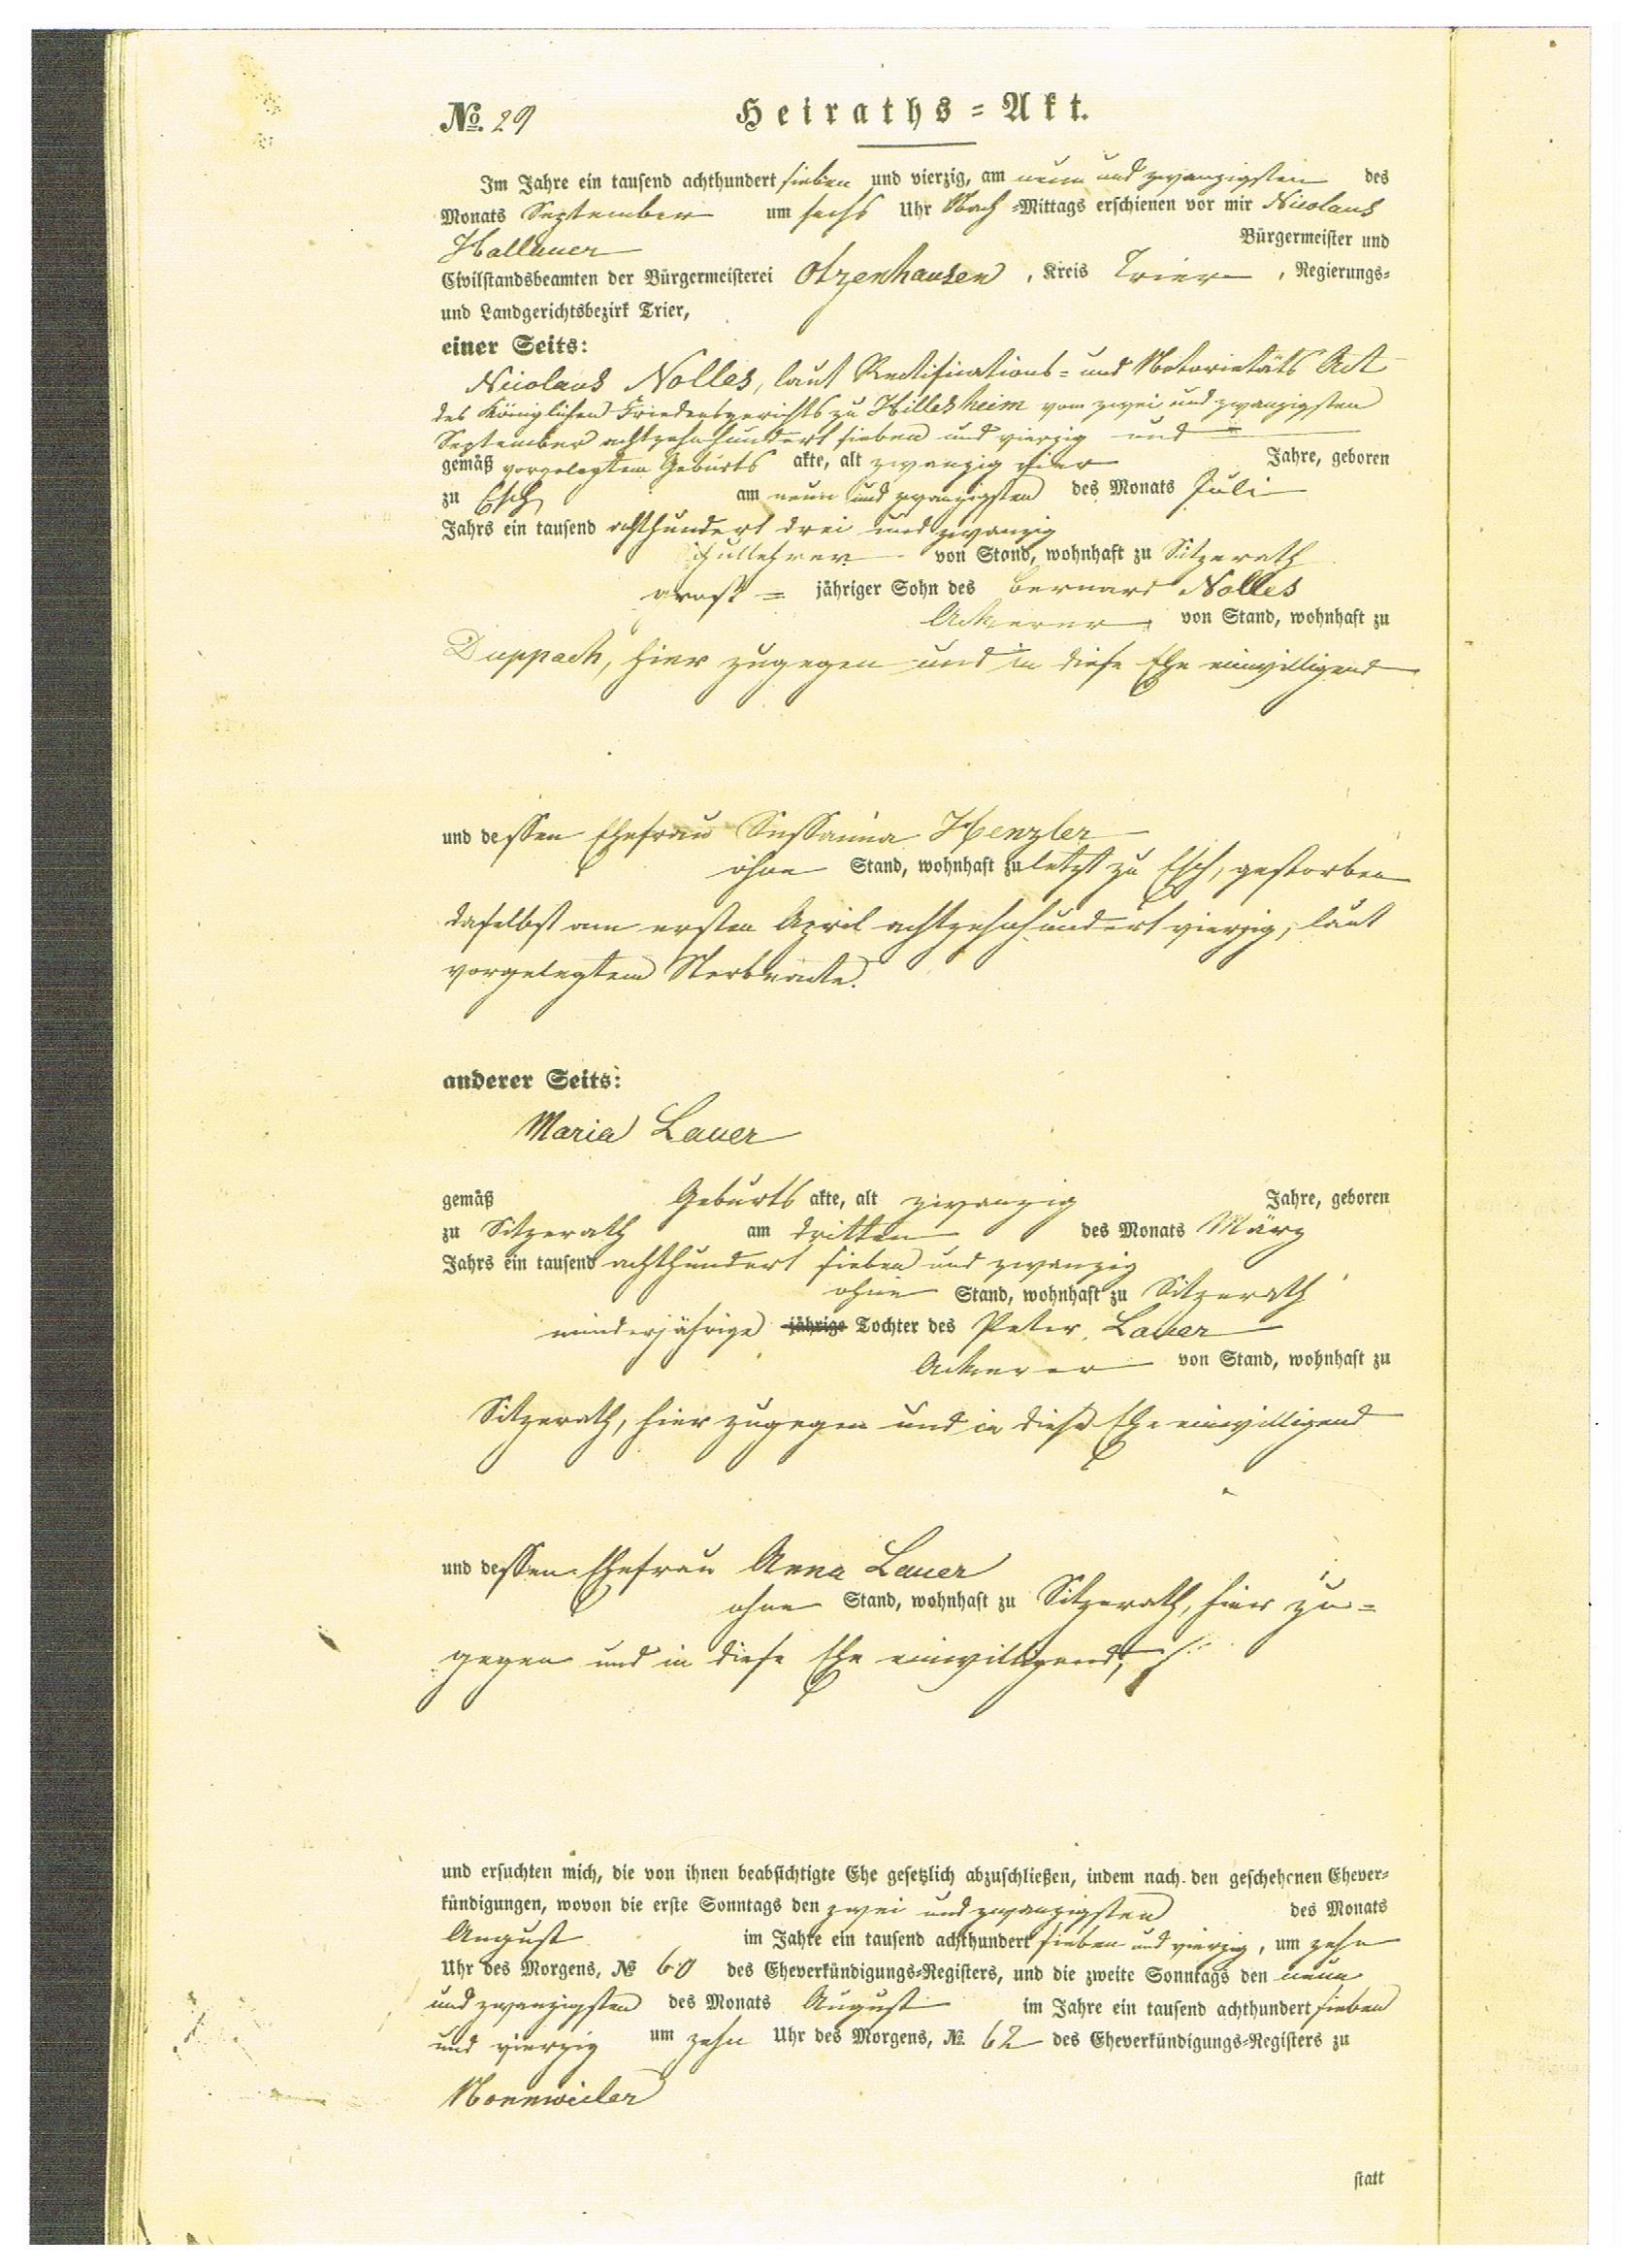 No. 29 Heiraths=Akt.
Im Jahre ein tausend achthundert sieben und vierzig, am neun und zwanzigsten des
Monats September um sechs Uhr Nach=Mittags erschienen vor mir Nicolaus
Hallauer Bürgermeister und
Civilstandsbeamten der Bürgermeisterei Otzenhausen, Kreis Trier, Regierungs=
und Landgerichtsbezirk Trier,
einer Seits:
Nicolaus Nolles, laut Rectifications= und Notorietäts Act
des Königlichen Friedensgerichts zu Hillesheim vom zwei und zwanzigsten
September achtzehnhundert sieben und vierzig und
gemäß vorgelegtem Geburts akte, alt zwanzig vier Jahre, geboren
zu Esch am neun und zwanzigsten des Monats Juli
Jahrs ein tausend achthundert drei und zwanzig
Schullehrer von Stand, wohnhaft zu Sitzerath
gross= jähriger Sohn des Bernard Nolles
Ackerer von Stand, wohnhaft zu
Duppach, hier zugegen und in diese Ehe einwilligend
und dessen Ehefrau Sussanna Henzler
ohne Stand, wohnhaft zuletzt zu Esch, gestorben
daselbst am ersten April achtzehnhundert vierzig, laut
vorgelegtem Sterbeacte.
anderer Seits:
Maria Lauer
gemäß Geburts akte, alt zwanzig Jahre, geboren
zu Sitzerath am dritten des Monats März
Jahrs ein tausend achthundert sieben und zwanzig
ohne Stand, wohnhaft zu Sitzerath
minderjährige jährige Tochter des Peter Lauer
Ackerer von Stand, wohnhaft zu
Sitzerath, hier zugegen und in diese Ehe einwilligend
und dessen Ehefrau Anna Lauer
ohne Stand, wohnhaft zu Sitzerath, hier zu=
gegen und in diese Ehe einwilligend,
und ersuchten mich, die von ihnen beabsichtigte Ehe gesetzlich abzuschließen, indem nach den geschehenen Ehever=
kündigungen, wovon die erste Sonntags den zwei und zwanzigsten des Monats
August im Jahre ein tausend achthundert sieben und vierzig, um zehn
Uhr des Morgens, No 60 des Eheverkündigungs=Registers, und die zweite Sonntags den neun
und zwanzigsten des Monats August im Jahre ein tausend achthundert sieben
und vierzig um zehn Uhr des Morgens, No. 62 des Eheverkündigungs=Registers zu
Nonnweiler
statt